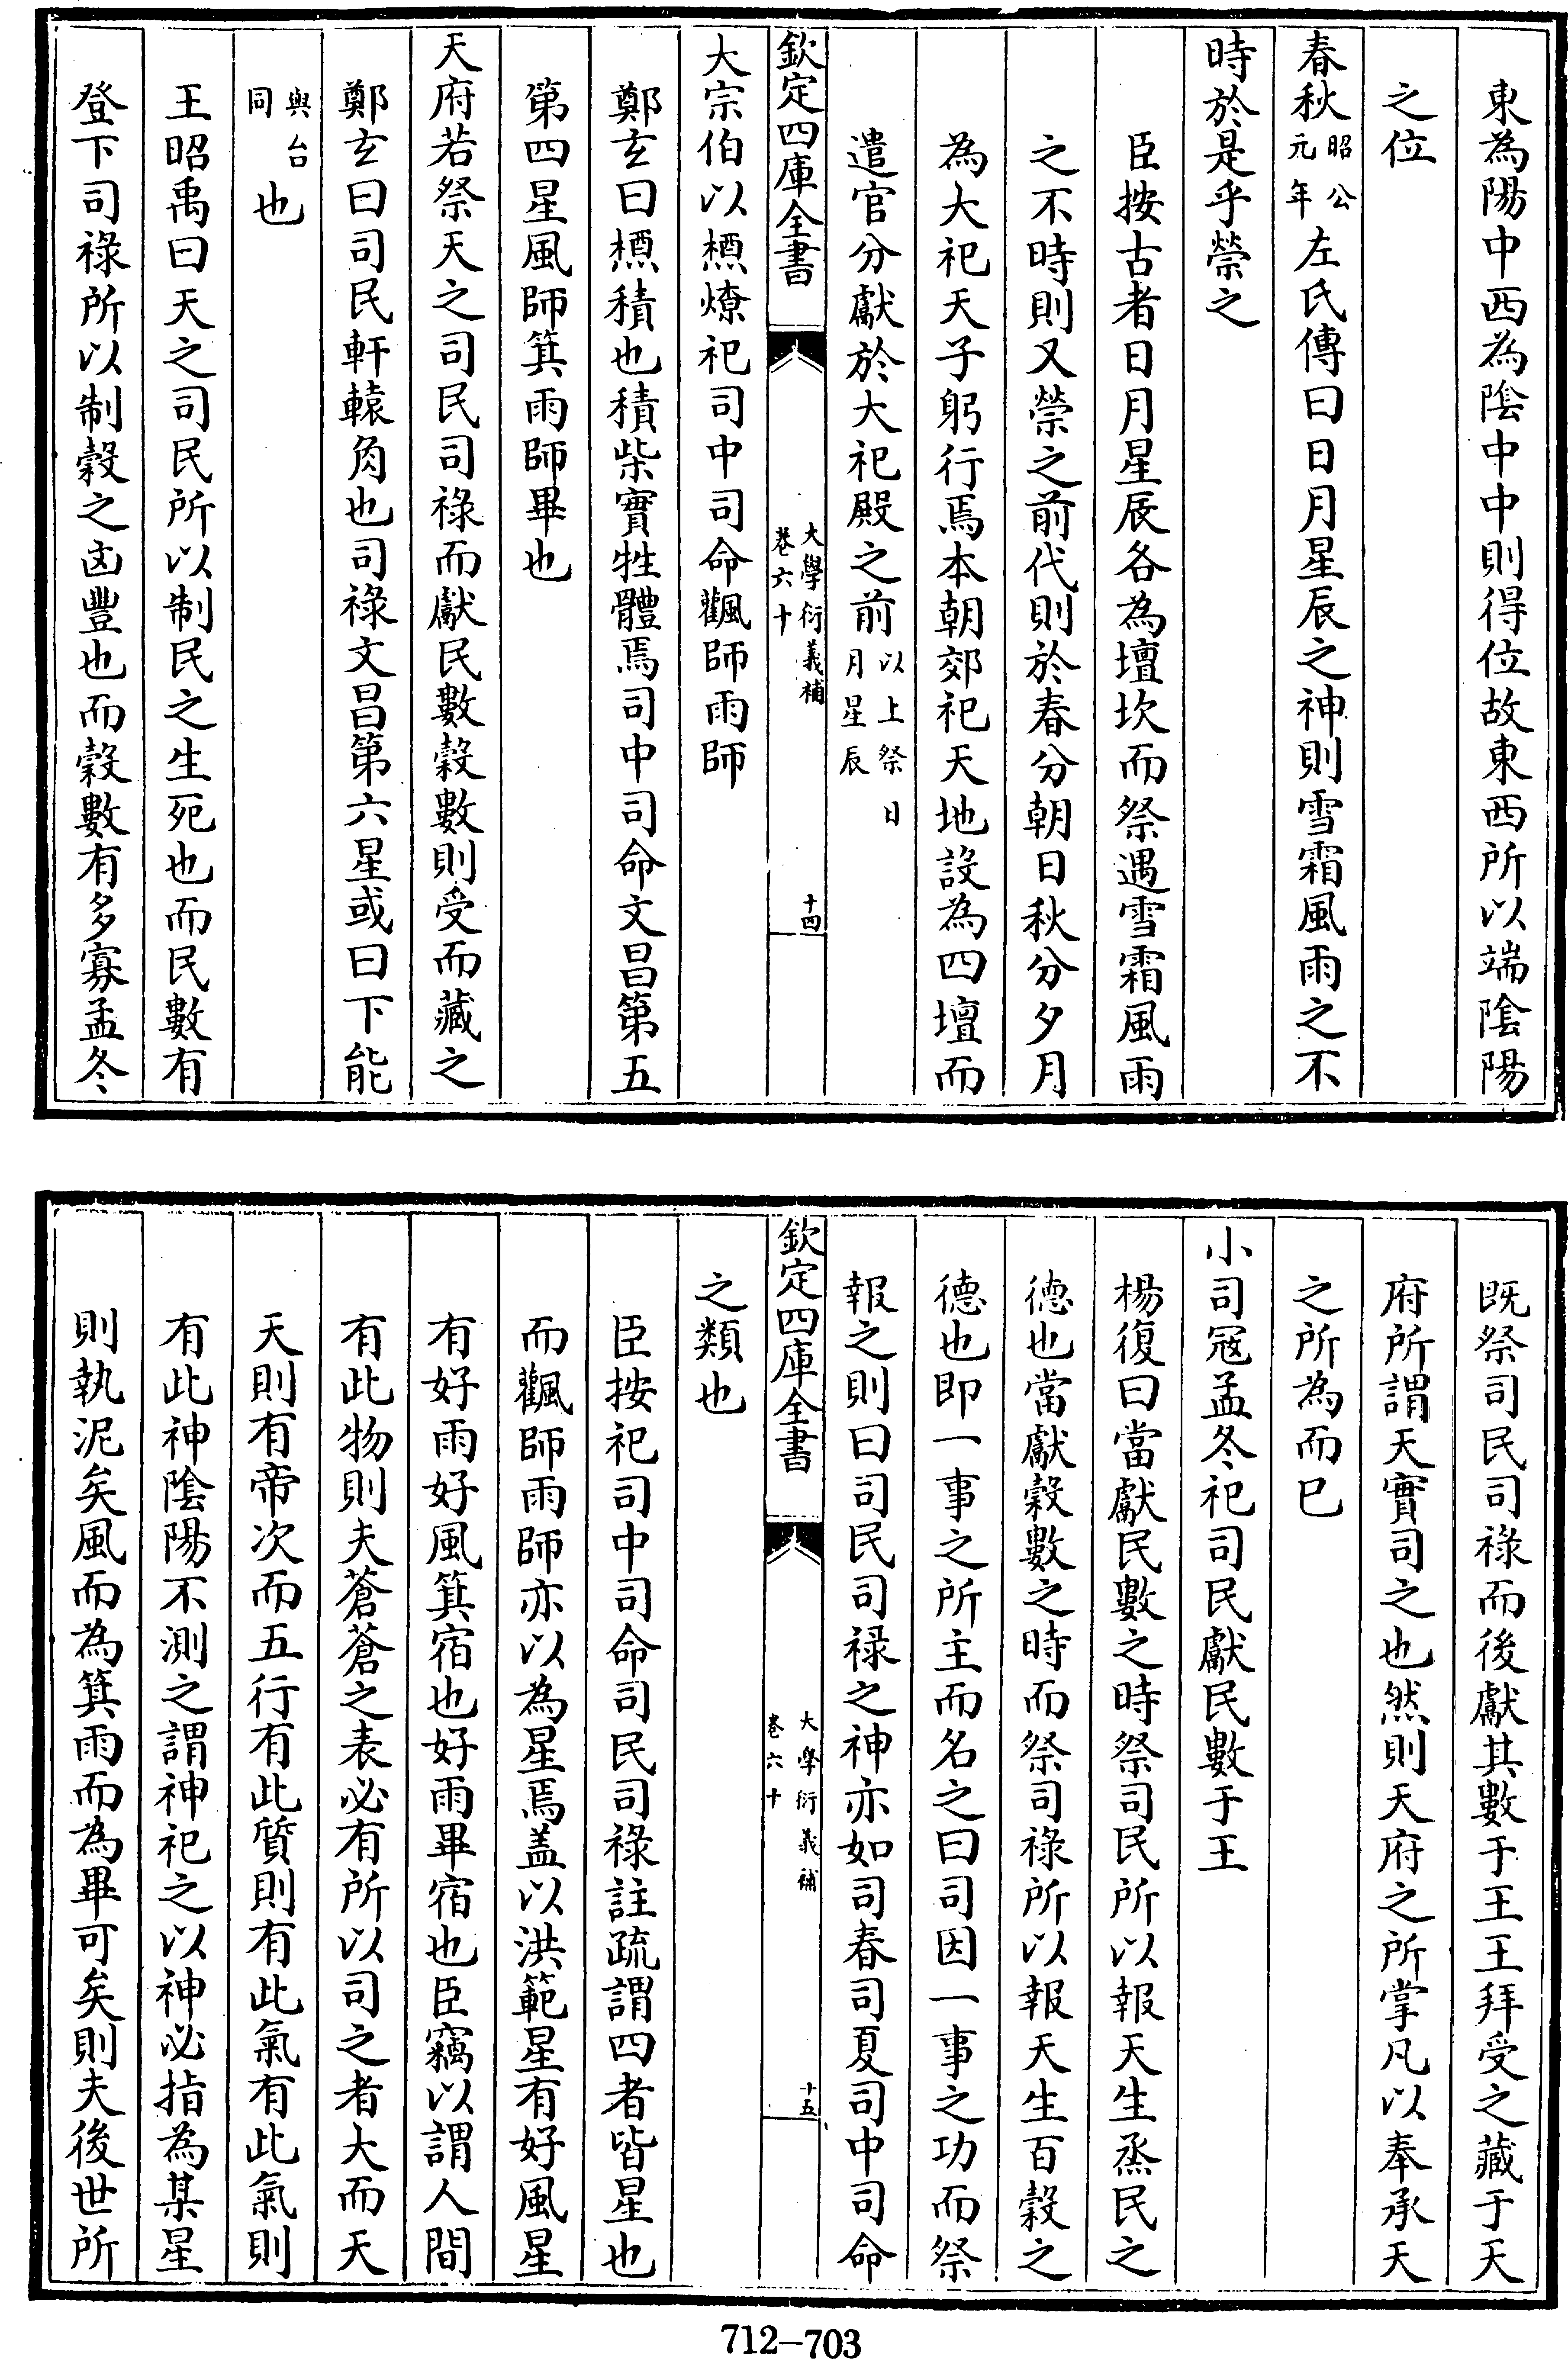 東為陽中西為陰中中則得位故東西所以端陰陽
之位
春秋昭公元年左氏傳曰日月星辰之神則雪霜風雨之不
時於是乎禜之
臣按古者日月星辰各為壇坎而祭遇雪霜風雨
之不時則又禜之前代則於春分朝日秋分夕月
為大祀天子躬行焉本朝郊祀天地設為四壇而
遣官分獻於大祀殿之前以上祭日月星辰
欽定四庫全書
大學衍義補
卷六十
十四
大宗伯以槱燎祀司中司命飌師雨師
鄭玄曰槱積也積柴實牲體焉司中司命文昌第五
第四星風師箕雨師畢也
天府若祭天之司民司祿而獻民數穀數則受而藏之
鄭玄曰司民軒轅角也司祿文昌第六星或曰下能
與台同也
王昭禹曰天之司民所以制民之生死也而民數有
登下司祿所以制穀之凶豐也而穀數有多寡孟冬
既祭司民司祿而後獻其數于王王拜受之藏于天
府所謂天實司之也然則天府之所掌凡以奉承天
之所為而已
小司寇孟冬祀司民獻民數于王
楊復曰當獻民數之時祭司民所以報天生烝民之
德也當獻穀數之時而祭司祿所以報天生百穀之
德也即一事之所主而名之曰司因一事之功而祭
報之則曰司民司祿之神亦如司春司夏司中司命
欽定四庫全書
大學衍義補
卷六十
十五
之類也
臣按祀司中司命司民司祿註疏謂四者皆星也
而飌師雨師亦以為星焉盖以洪範星有好風星
有好雨好風箕宿也好雨畢宿也臣竊以謂人間
有此物則夫蒼蒼之表必有所以司之者大而天
天則有帝次而五行有此質則有此氣有此氣則
有此神陰陽不測之謂神祀之以神必指為某星
則執泥矣風而為箕雨而為畢可矣則夫後世所
712-703